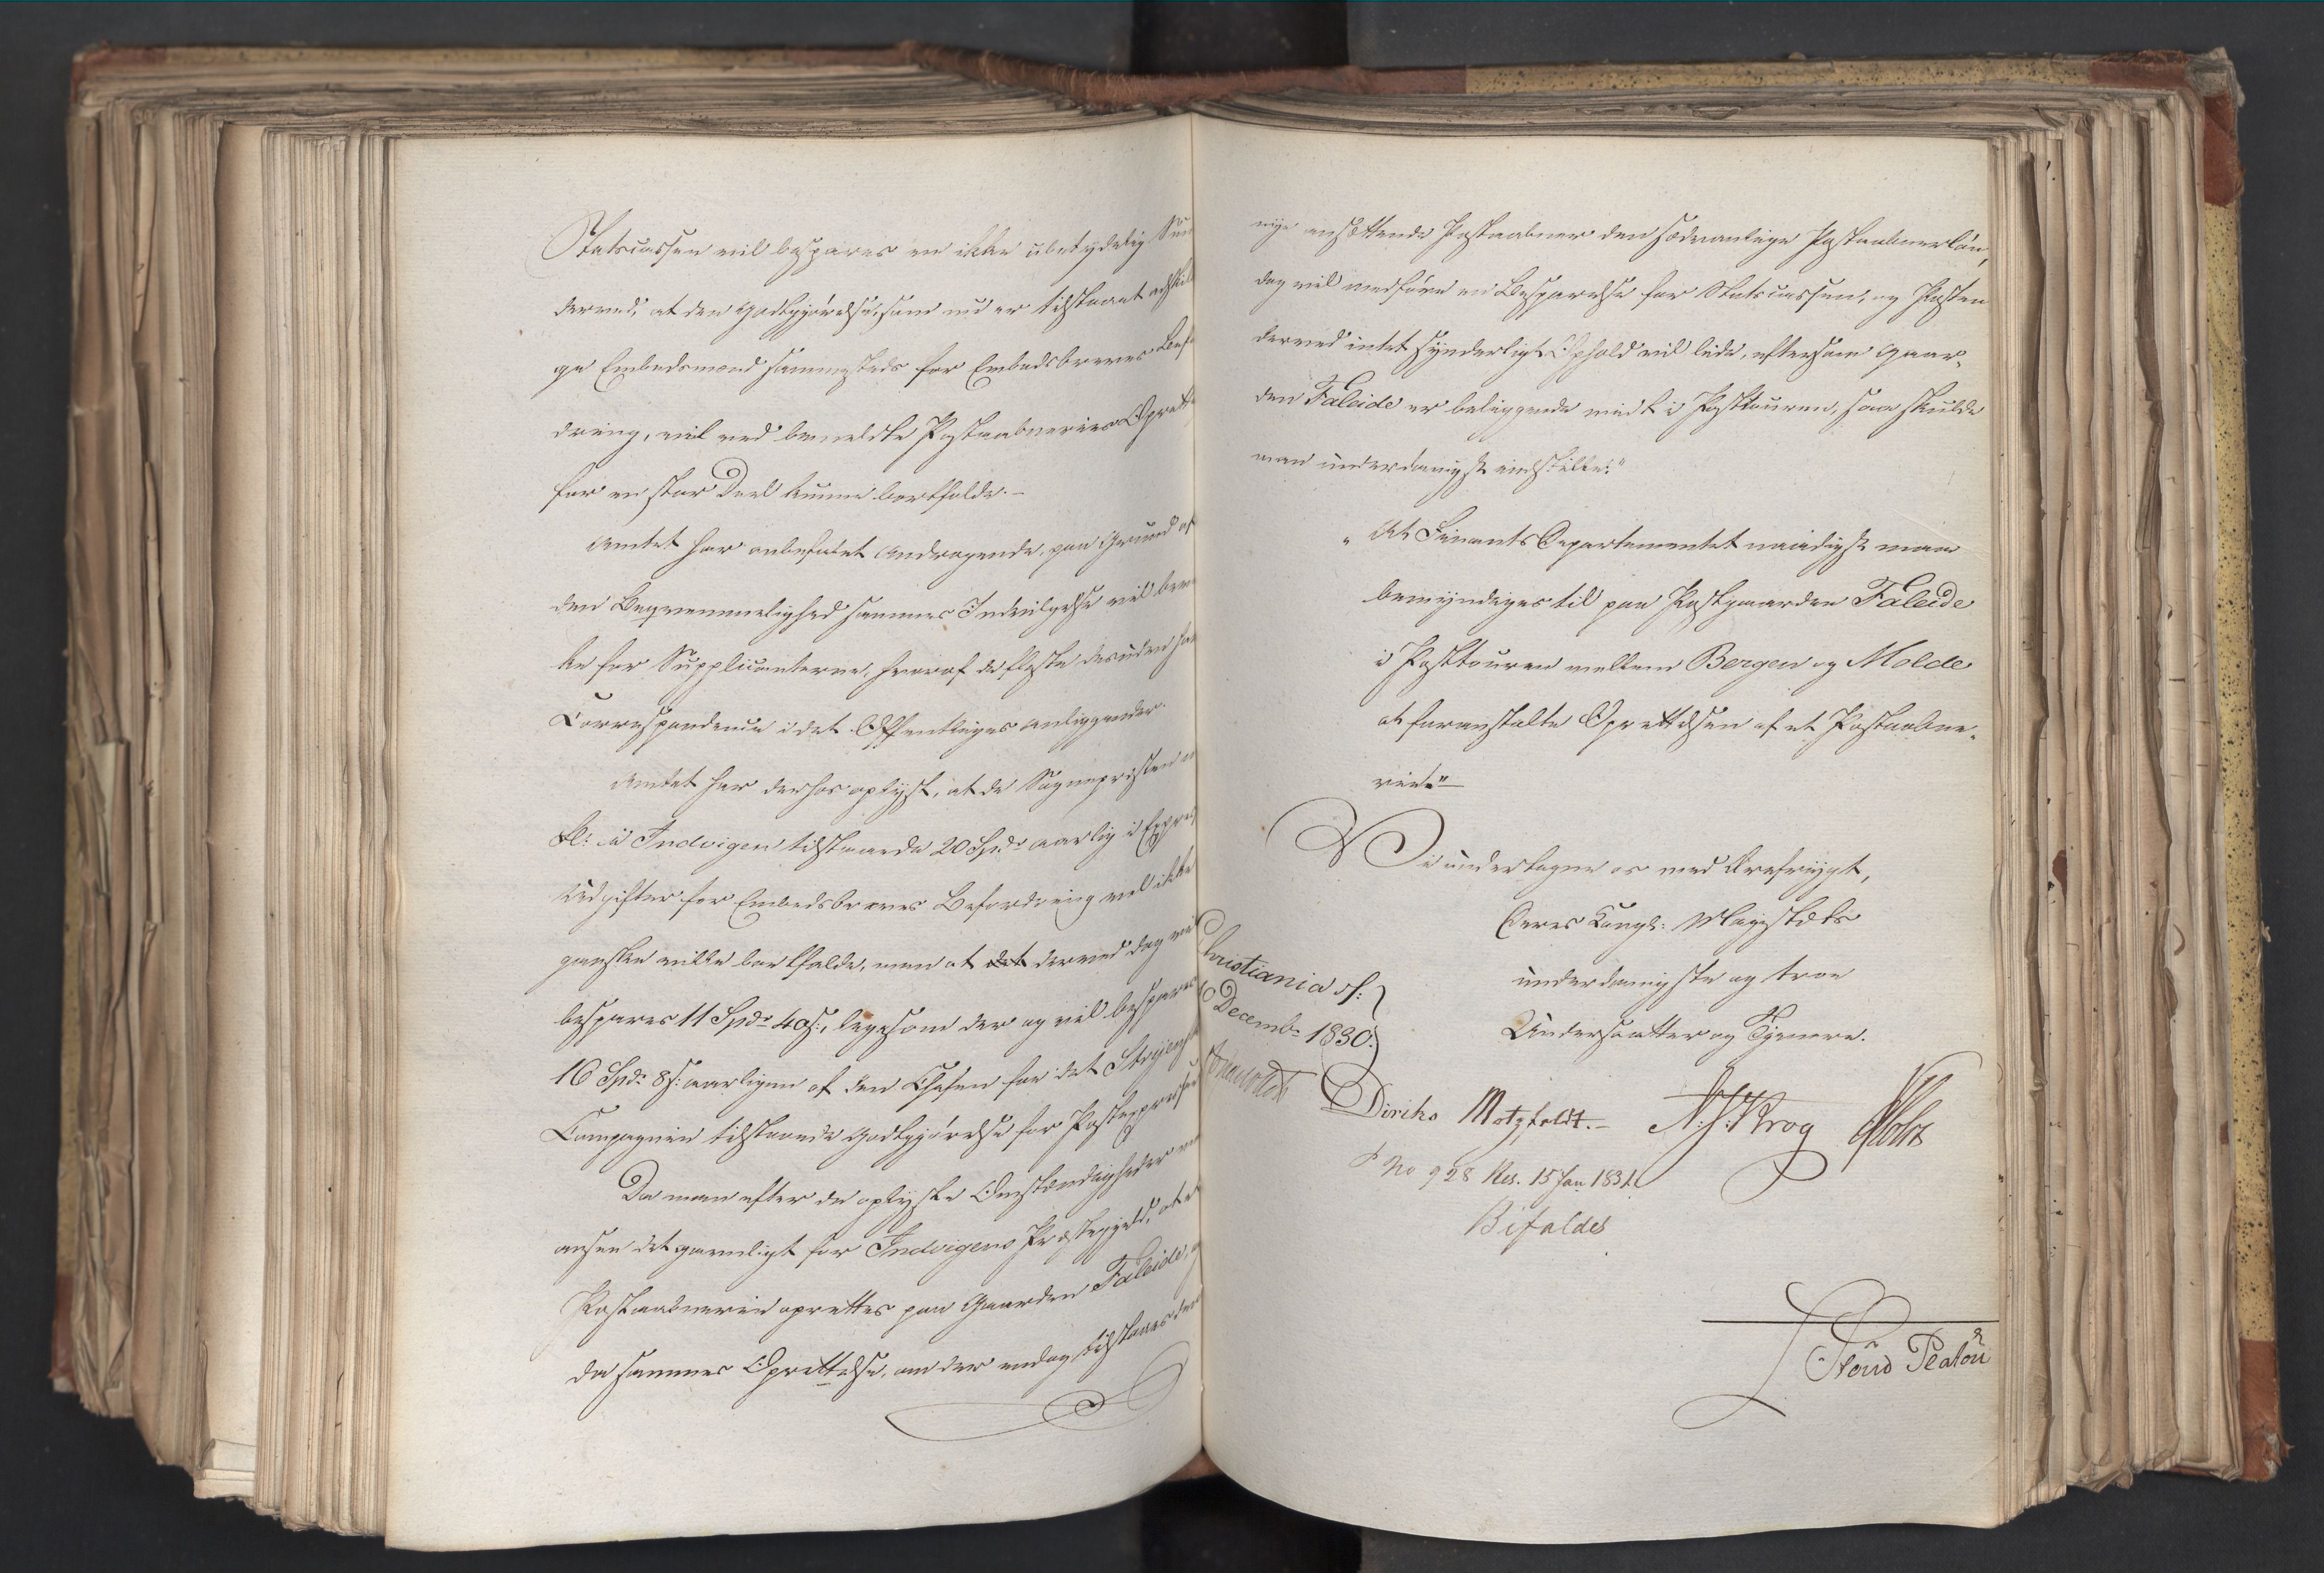 Statscassen vil bespares en ikke ubetydelig
derved, at den Godtgjørelse, som nu er tilstaaet
ge Embedsmænd sammesteds for Embedsbreves
dring, vil ved bemeldte Postaabneries
for en stor Deel kunne bortfalde.-
Amtet har anbefalet Andragende, paa Grund af
den Beqvemmelighed sammes Indvilgelse vil
ke for Supplicanterne, hvoraf de fleste desuden
Correspondence i det Offentliges Anliggender.
Amtet har derhos oplyst, at de Sognepræsten
til: i Indvigen tilstaaede 20 Spdr aarlig i
Udgifter for Embedsbreves Befordring vel ikke
ganske ville bortfalde, men at det derved dog
bespares 11 Spdr 40 s:, ligesom der og vil bespares
16 Spdr 8 s: aarligen af den Chefen for det
Compagnie tilstaaede Godtgjørelse for
Da man efter de oplyste Omstændigheder
ansee det gavnligt for Indvigens Præstegjeld, at
Postaabnerie oprettes paa Gaarden Faleide,
da sammes Oprettelse, om der endog tilstaaes den
nye ansættende Postaabner den sædvanlige Postaabnerløn,
dog vil medføre en Besparelse for Statscassen, og Posten
derved intet synderligt Ophold vil lide, eftersom Gaar-
den Faleide er beliggende midt i Posttouren, saa skulde
man underdanigst indstille:"
"At Finants Departementet naadigst maa
bemyndiges til paa Postgaarden Faleide
i Posttouren mellem Bergen og Molde
at foranstalte Oprettelsen af et Postaabne-
rie."-
Vi undertegne os med Ærefrygt,
Deres Kongl: Majestæts
underdanigste og troe
Undersaatter og Tjenere.
Christiania d:
Decembr 1830.
Diriks Motzfeldt.- N. J. Krog Holst
No 928 Res. 15 Jan 1831
Bifaldes